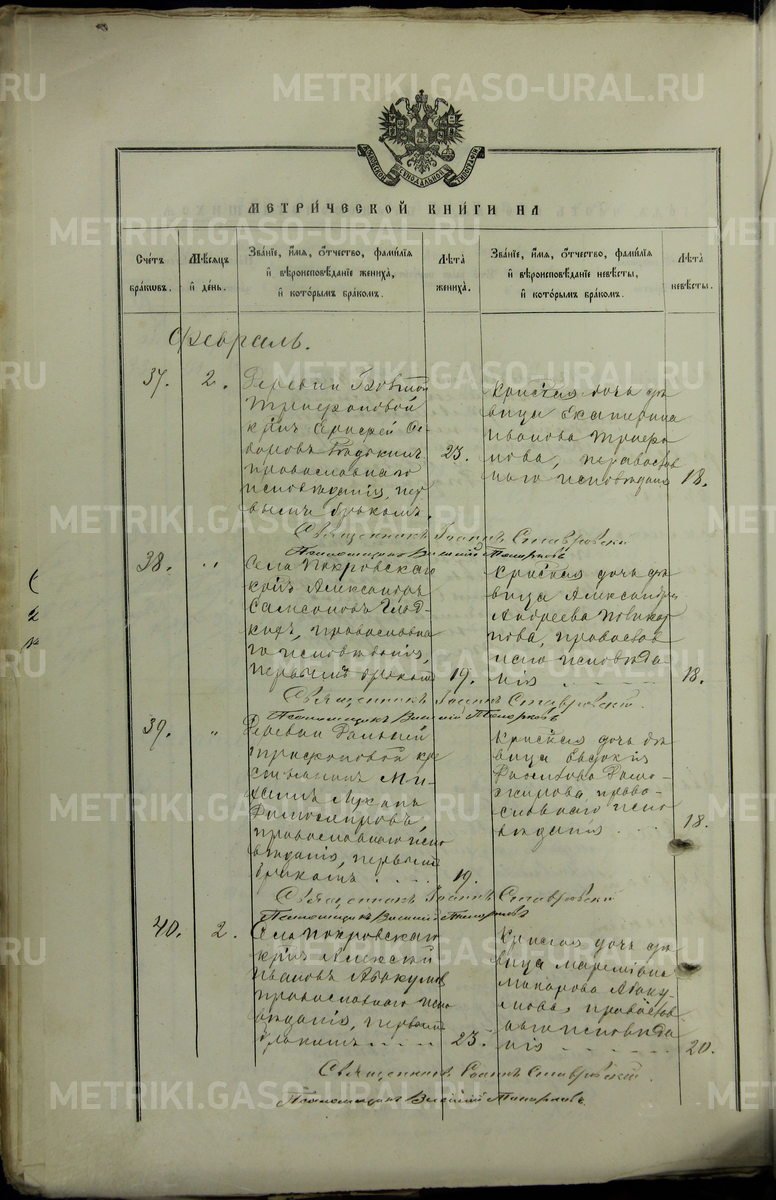 METRIKI.GASO-URAL.RU
МЕТРИ́ЧЕСКОЙ КНИ́ГИ НА
Сче́тъ бра́кωвъ.
Мѣ́сяцъ и҆ де́нь.
Зва́нїе, и҆́мя, ѻ҆́тчество, фами́лїя и҆ вѣроисповѣ́данїе жениха̀, и҆ кото́рымъ бра́комъ.
Лѣ́та жениха̀.
Зва́нїе, и҆́мя, ѻ҆́тчество, фами́лїя и҆ вѣроисповѣ́данїе невѣ́сты, и҆ кото́рымъ бра́комъ.
Лѣ́та невѣ́сты.
Февраль.
37.
2.
Деревни
крнъ
православнаго
исповѣданія, пер
вымъ бракомъ.
23.
Крнская дочь дѣ
вица Екатерина
Иванова
нова, православ
наго исповѣданія
18.
Священникъ Іоаннъ Ставровскій
Псаломщикъ Василій Топорковъ
38.
"
Села Покровскаго
крнъ Александръ
Самсоновъ
православна
го исповѣданія,
первымъ бракомъ
19.
Крнская дочь дѣ
вица Александра
Андреева Поликар
пова, православ
наго исповѣда
нія
18.
Священникъ Іоаннъ Ставровскій.
Псаломщикъ Василій Топорковъ
39.
"
Деревни
крe
стьянинъ Ми
хаилъ
православнаго испо
вѣданія, первымъ
бракомъ
19.
Крнская дочь дѣ
вица Евдокія
право
славнаго испо
вѣданія
18.
Священникъ Іоаннъ Ставровскій
Псаломщикъ Василій Топорковъ
40.
2.
Села Покровскаго
крнъ Алексѣй
Ивановъ Авакумовъ
православнаго испо
вѣданія, первымъ
бракомъ
23.
Крнская дочь дѣ
вица
Макарова Аваку
мова, православ
наго исповѣда
нія
20.
Священникъ Іоаннъ Ставровскій.
Псаломщикъ Василій Топорковъ